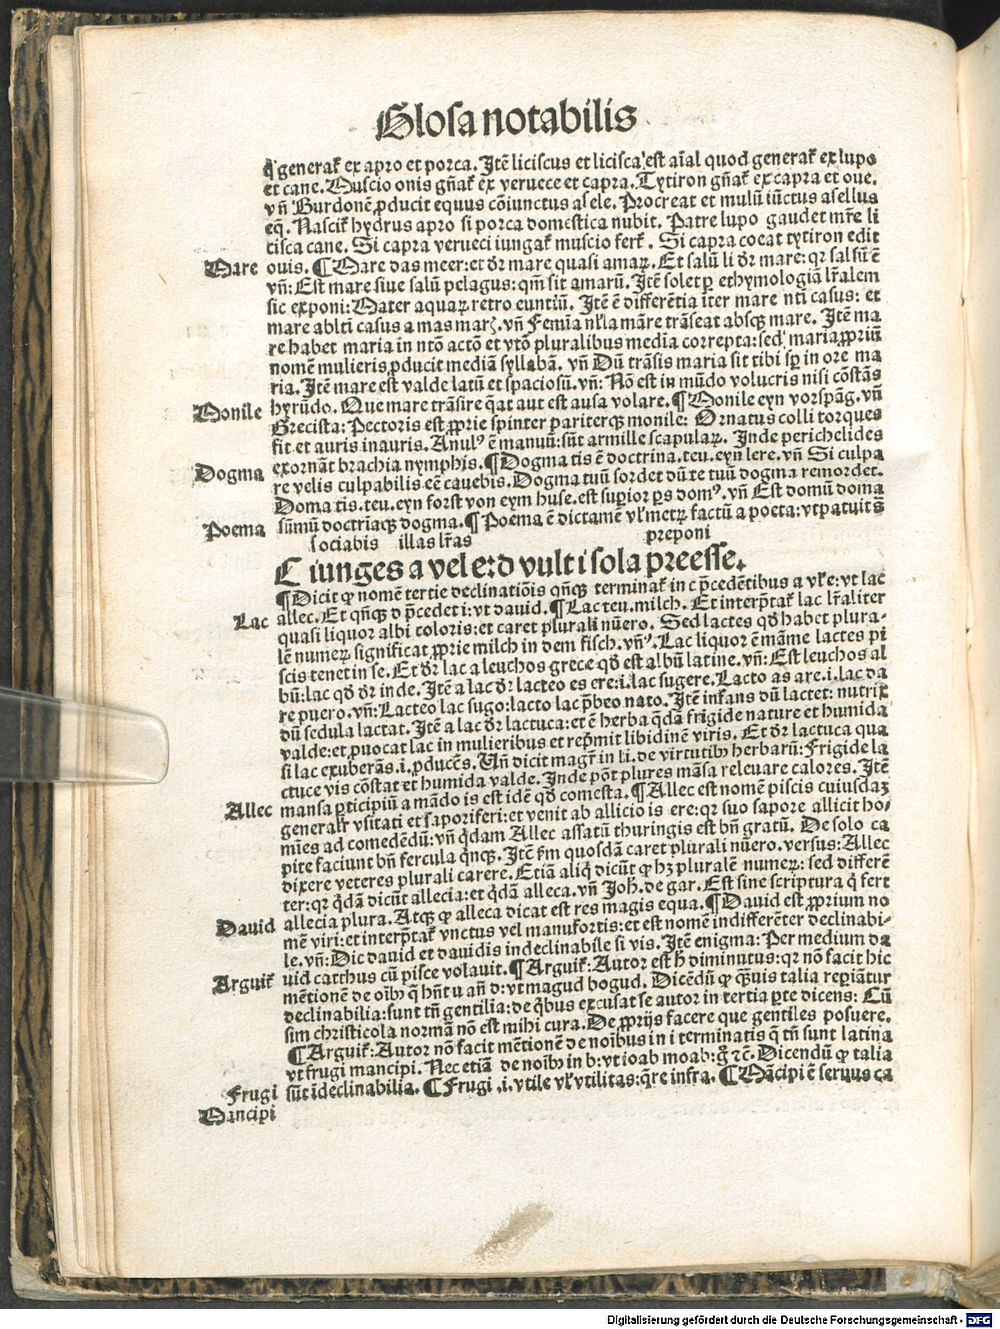 Glosa notabilis
q̇ generat̃ ex apro et porca. Itẽ liciscus et licisca: est aĩal quod generat̃ ex lupo
et cane. Muscio onis gñat̃ ex veruece et capra. Tytiron gñat̃ ex capra et oue.
vñ Burdonẽ ꝓducit equus cõiunctus asele. Procreat et mulũ iũctus asellus
eq̃. Nascit̃ hydrus apro si porca domestica nubit. Patre lupo gaudet mr̃e li
cisca cane. Si capra verueci iungat̃ muscio fert̃. Si capra coeat tytiron edit
Mare ouis. ¶ Mare das meer: et dr̃ mare quasi amaꝝ. Et salũ li dr̃ mare: qꝛ salsũ ẽ
vñ: Est mare siue salũ pelagus: qm̃ sit amarũ. Itẽ solet ꝑ ethymologiã lr̃alem
sic exponi: Mater aquaꝝ retro euntiũ. Itẽ ẽ differẽtia iter mare nt̃i casus: et
mare ablt̃i casus a mas marꝭ. vñ Femĩa nl̃la mãre trãseat absqꝫ mare. Itẽ ma
re habet maria in nt̃o actõ et vt̃o pluralibus media correpta: sed maria ꝓpriũ
nomẽ mulieris ꝓducit mediã syllabã. vñ Dũ trãsis maria sit tibi sp̃ in ore ma
ria. Itẽ mare est valde latũ et spaciosũ. vñ: Nõ est in mũdo volucris nisi cõstãs
Monile hyrũdo. Que mare trãsire q̃at aut est ausa volare. ¶ Monile eyn vorspãg. vñ
Grecista: Pectoris est ꝓprie spinter pariterqꝫ monile: Ornatus colli torques
fit et auris inauris. Anulꝰ ẽ manuũ: sũt armille scapulaꝝ. Inde perichelides
Dogma exornãt brachia nymphis. ¶ Dogma tis ẽ doctrina. teu. eyn lere. vñ Si culpa
re velis culpabilis eẽ cauebis. Dogma tuũ sordet dũ te tuũ dogma remordet.
Doma tis. teu. eyn forst von eym huse. est supior ps domꝰ. vñ Est domũ doma
Poema sũmũ doctrĩaqꝫ dogma. ¶ Poema ẽ dictamẽ vl̃ metꝝ factũ a poeta: vt patuit s̃
sociabis illas lr̃as preponi
C iunges a vel e: d vult i sola preesse.
¶ Dicit ꝙ nomẽ tertie declinatiõis qñqꝫ terminat̃ in c p̃cedẽtibus a vl̃ e: vt lac
Lac allec. Et qñqꝫ d p̃cedet i: vt dauid. ¶ Lac teu. milch. Et interp̃tat̃ lac lr̃aliter
quasi liquor albi coloris: et caret plurali nũero. Sed lactes qd̃ habet plura-
lẽ numeꝝ significat ꝓprie milch in dem fisch. vñꝰ. Lac liquor ẽ mãme lactes pi
scis tenet in se. Et dr̃ lac a leuchos grece qd̃ est albũ latine. vñ: Est leuchos al
bũ: lac qd̃ dr̃ inde. Itẽ a lac dr̃ lacteo es ere: i. lac sugere. Lacto as are. i. lac da
re puero. vñ: Lacteo lac sugo: lacto lac p̃beo nato. Itẽ infans dũ lactet: nutrix
dũ sedula lactat. Itẽ a lac dr̃ lactuca: et ẽ herba q̃dã frigide nature et humida
valde: et ꝓuocat lac in mulieribus et rep̃mit libidinẽ viris. Et dr̃ lactuca qua
si lac exuberãs. i. ꝓducẽs. Vñ dicit magr̃ in li. de virtutibꝰ herbarũ: Frigide la
ctuce vis cõstat et humida valde. Inde põt plures mãsa releuare calores. Itẽ
Allec mansa ꝑticipiũ a mãdo is est idẽ qd̃ comesta. ¶ Allec est nomẽ piscis cuiusdaꝫ
generalr̃ vsitati et saporiferi: et venit ab allicio is ere: qꝛ suo sapore allicit ho-
mĩes ad comedẽdũ: vñ q̇dam Allec assatũ thuringis est bñ gratũ. De solo ca
pite faciunt bñ fercula q̇nqꝫ. Itẽ ẜm quosdã caret plurali nũero. versus: Allec
dixere veteres plurali carere. Etiã aliq̇ dicũt ꝙ hꝫ pluralẽ numeꝝ: sed differẽ
ter: qꝛ q̇dã dicũt allecia: et q̇dã alleca. vñ Joh̃. de gar. Est sine scriptura q̇ fert
David allecia plura. Atqꝫ ꝙ alleca dicat est res magis equa. ¶ Dauid est ꝓprium no
mẽ viri: et interp̃tat̃ vnctus vel manufortis: et est nomẽ indifferẽter declinabi-
le. vñ: Dic dauid et dauidis indeclinabile si vis. Itẽ enigma: Per medium da
Arguit̃ uid catthus cũ pisce volauit. ¶ Arguit̃: Autor est h̃ diminutus: qꝛ nõ facit hic
mẽtionẽ de oĩbꝰ q̇ hñt u añ d: vt magud bogud. Dicẽdũ ꝙ q̃uis talia reꝑiãtur
declinabilia: sunt tñ gentilia: de q̇bus excusat se autor in tertia ꝑte dicens: Cũ
sim christicola normã nõ est mihi cura. De ꝓprijs facere que gentiles posuere.
¶ Arguit̃: Autor nõ facit mẽtionẽ de noĩbus in i terminatis q̃ tñ sunt latina
vt frugi mancipi. Nec etiã de noĩbꝰ in b: vt ioab moab: q̃re ⁊c̃. Dicendũ ꝙ talia
Frugi sũt ĩdeclinabilia. ¶ Frugi .i. vtile vl̃ vtilitas: q̃re infra. ¶ Mãcipi ẽ seruus ca
Mancipi
Digitalisierung gefördert durch die Deutsche Forschungsgemeinschaft - DFG